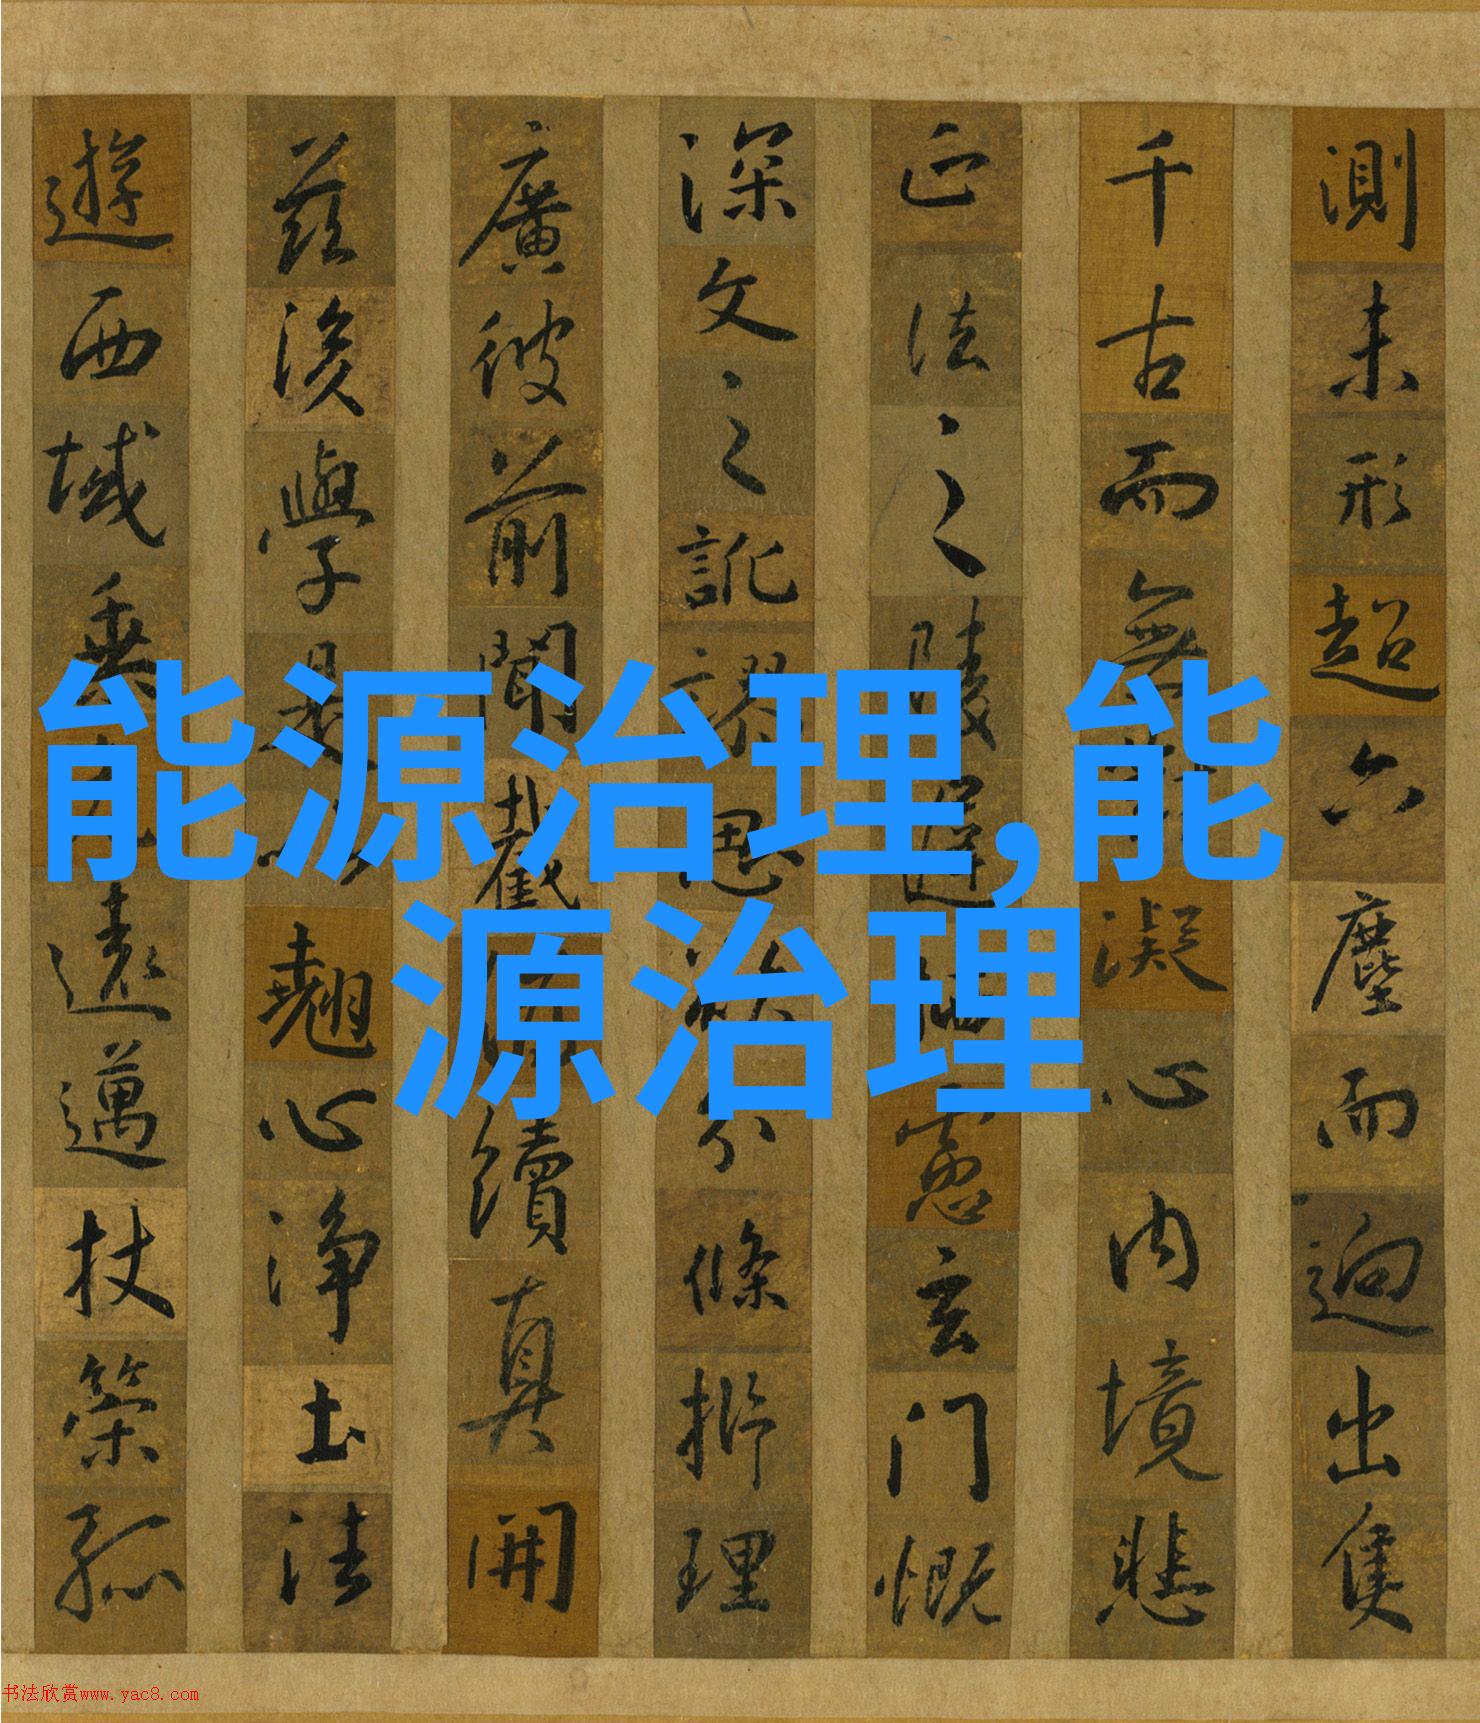 測未形超六塵而迥出隻
千古而無凝心內境悲
正法之陵遲慮玄門慨
深文之訛謬思分條析理
廣彼前聞截續真開
茲後學是翹心淨土法
遊西域乘遠邁杖策孤
能源治理,能
源治理
书法欣赏www.yac8.com